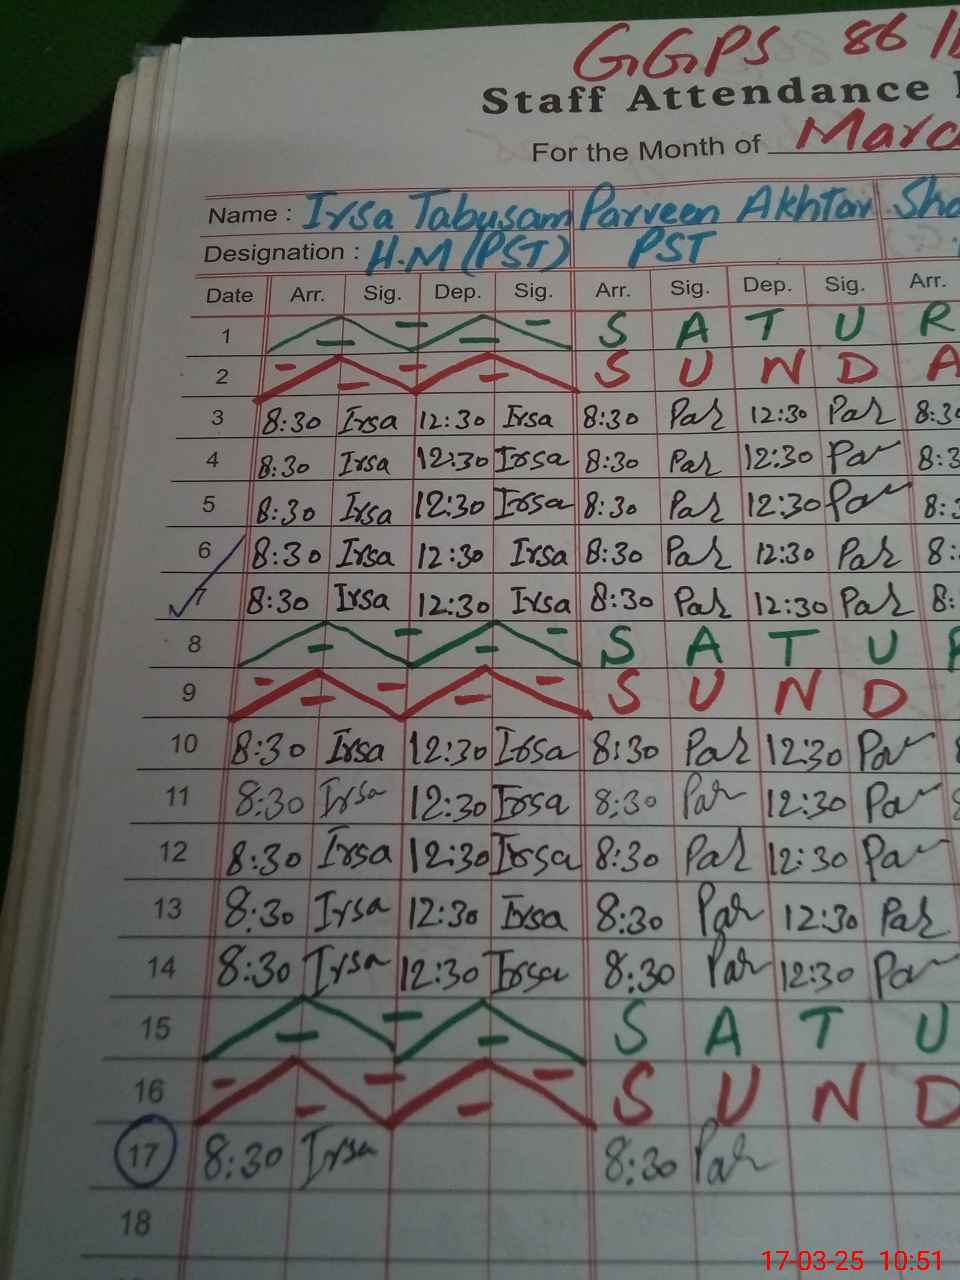 GGPS 86
Staff Attendance
For the Month of
Name : Irsa Tabusam Parveen Akhtar
Designation : H.M (PST) PST
Date Arr. Sig. Dep. Sig. Arr. Sig. Dep. Sig. Arr.
1 S A T U R
2 S U N D A
3 8:30 Irsa 12:30 Irsa 8:30 Par 12:30 Par
4 8:30 Irsa 12:30 Irsa 8:30 Par 12:30 Par
5 8:30 Irsa 12:30 Irsa 8:30 Par 12:30 Par
6 8:30 Irsa 12:30 Irsa 8:30 Par 12:30 Par
7 8:30 Irsa 12:30 Irsa 8:30 Par 12:30 Par
8 S A T U
9 S U N D
10 8:30 Irsa 12:30 Irsa 8:30 Par 12:30 Par
11 8:30 Irsa 12:30 Irsa 8:30 Par 12:30 Par
12 8:30 Irsa 12:30 Irsa 8:30 Par 12:30 Par
13 8:30 Irsa 12:30 Irsa 8:30 Par 12:30 Par
14 8:30 Irsa 12:30 Irsa 8:30 Par 12:30 Par
15 S A T U
16 S U N D
17 8:30 Irsa 8:30 Par
18
17-03-25 10:51